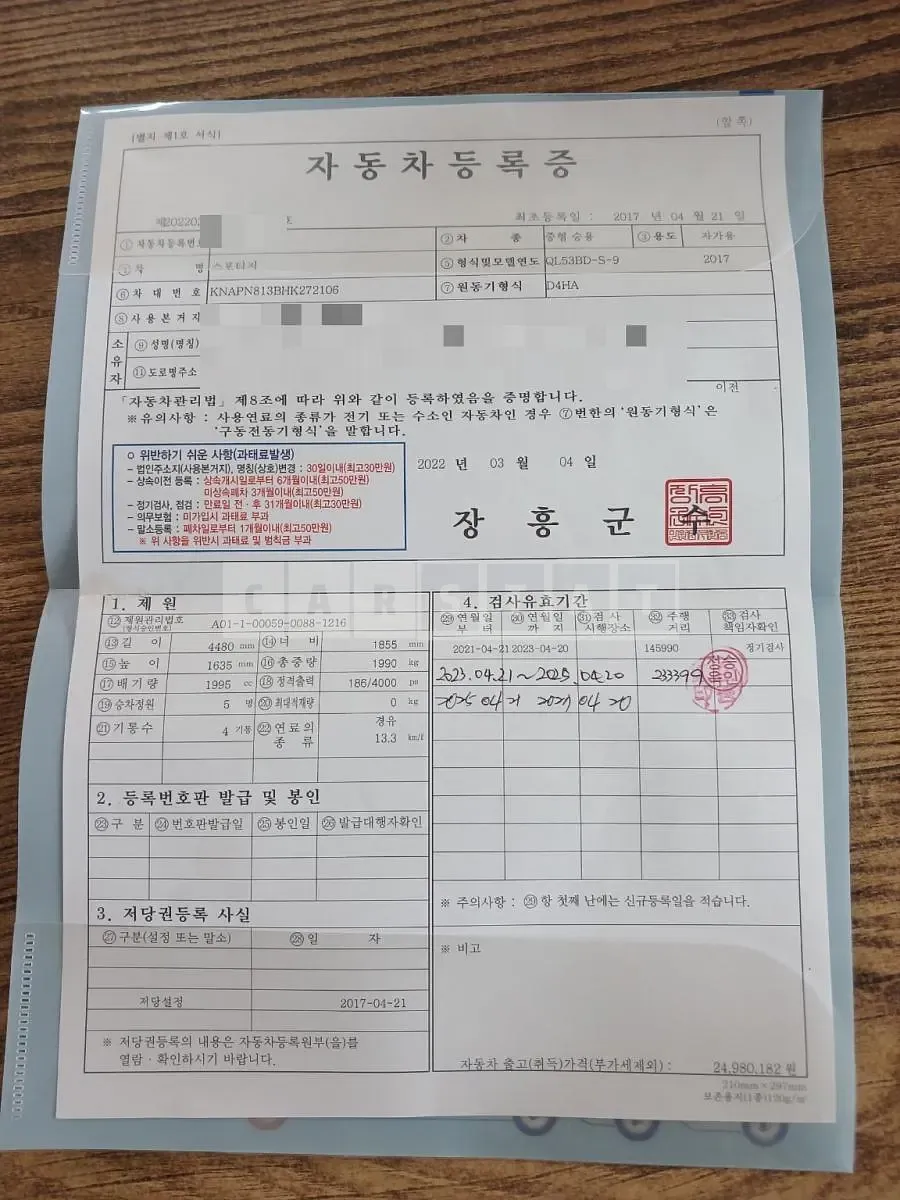 [별지 제1호 서식]
(앞 쪽)
자동차등록증
제202202 호
최초등록일 : 2017 년 04 월 21 일
① 자동차등록번호
② 차 종 중형 승용 ③ 용도 자가용
④ 차 명 스포티지
⑤ 형식및모델연도 QL53BD-S-9 2017
⑥ 차 대 번 호 KNAPN813BHK272106
⑦ 원동기형식 D4HA
⑧ 사용본거지
소유자
⑨ 성명(명칭)
⑪ 도로명주소
이전
「자동차관리법」 제8조에 따라 위와 같이 등록하였음을 증명합니다.
※유의사항 : 사용연료의 종류가 전기 또는 수소인 자동차인 경우 ⑦번란의 '원동기형식'은
'구동전동기형식'을 말합니다.
○ 위반하기 쉬운 사항(과태료발생)
- 법인주소지(사용본거지), 명칭(상호)변경 : 30일이내(최고30만원)
- 상속이전 등록 : 상속개시일로부터 6개월이내(최고50만원)
미상속폐차 3개월이내(최고50만원)
- 정기검사, 점검 : 만료일 전·후 31개월이내(최고30만원)
- 의무보험 : 미가입시 과태료 부과
- 말소등록 : 폐차일로부터 1개월이내(최고50만원)
※ 위 사항을 위반시 과태료 및 범칙금 부과
2022 년 03 월 04 일
장 흥 군 수
1. 제 원
⑫ 제원관리번호 (형식승인번호) A01-1-00059-0088-1216
⑬ 길 이 4480 mm ⑭ 너 비 1855 mm
⑮ 높 이 1635 mm ⑯ 총중량 1990 kg
⑰ 배기량 1995 cc ⑱ 정격출력 186/4000 ps
⑲ 승차정원 5 명 ⑳ 최대적재량 0 kg
㉑ 기통수 4 기통 ㉒ 연료의 종류 경유 13.3 km/ℓ
2. 등록번호판 발급 및 봉인
㉓ 구 분 ㉔ 번호판발급일 ㉕ 봉인일 ㉖ 발급대행자확인
3. 저당권등록 사실
㉗ 구분(설정 또는 말소) ㉘ 일 자
저당설정 2017-04-21
※ 저당권등록의 내용은 자동차등록원부(을)를
열람·확인하시기 바랍니다.
4. 검사유효기간
㉙ 연월일 부터 ㉚ 연월일 까지 ㉛ 검 사 시행장소 ㉜ 주행 거리 ㉝ 검사 책임자확인
2021-04-21 2023-04-20 145990 정기검사
2023.04.21~2025.04.20 233399
2025 04 21 2027 04 20
※ 주의사항 : ㉙항 첫째 난에는 신규등록일을 적습니다.
※ 비고
자동차 출고(취득)가격(부가세제외) : 24,980,182 원
210mm×297mm
보존용지(1종)120g/㎡